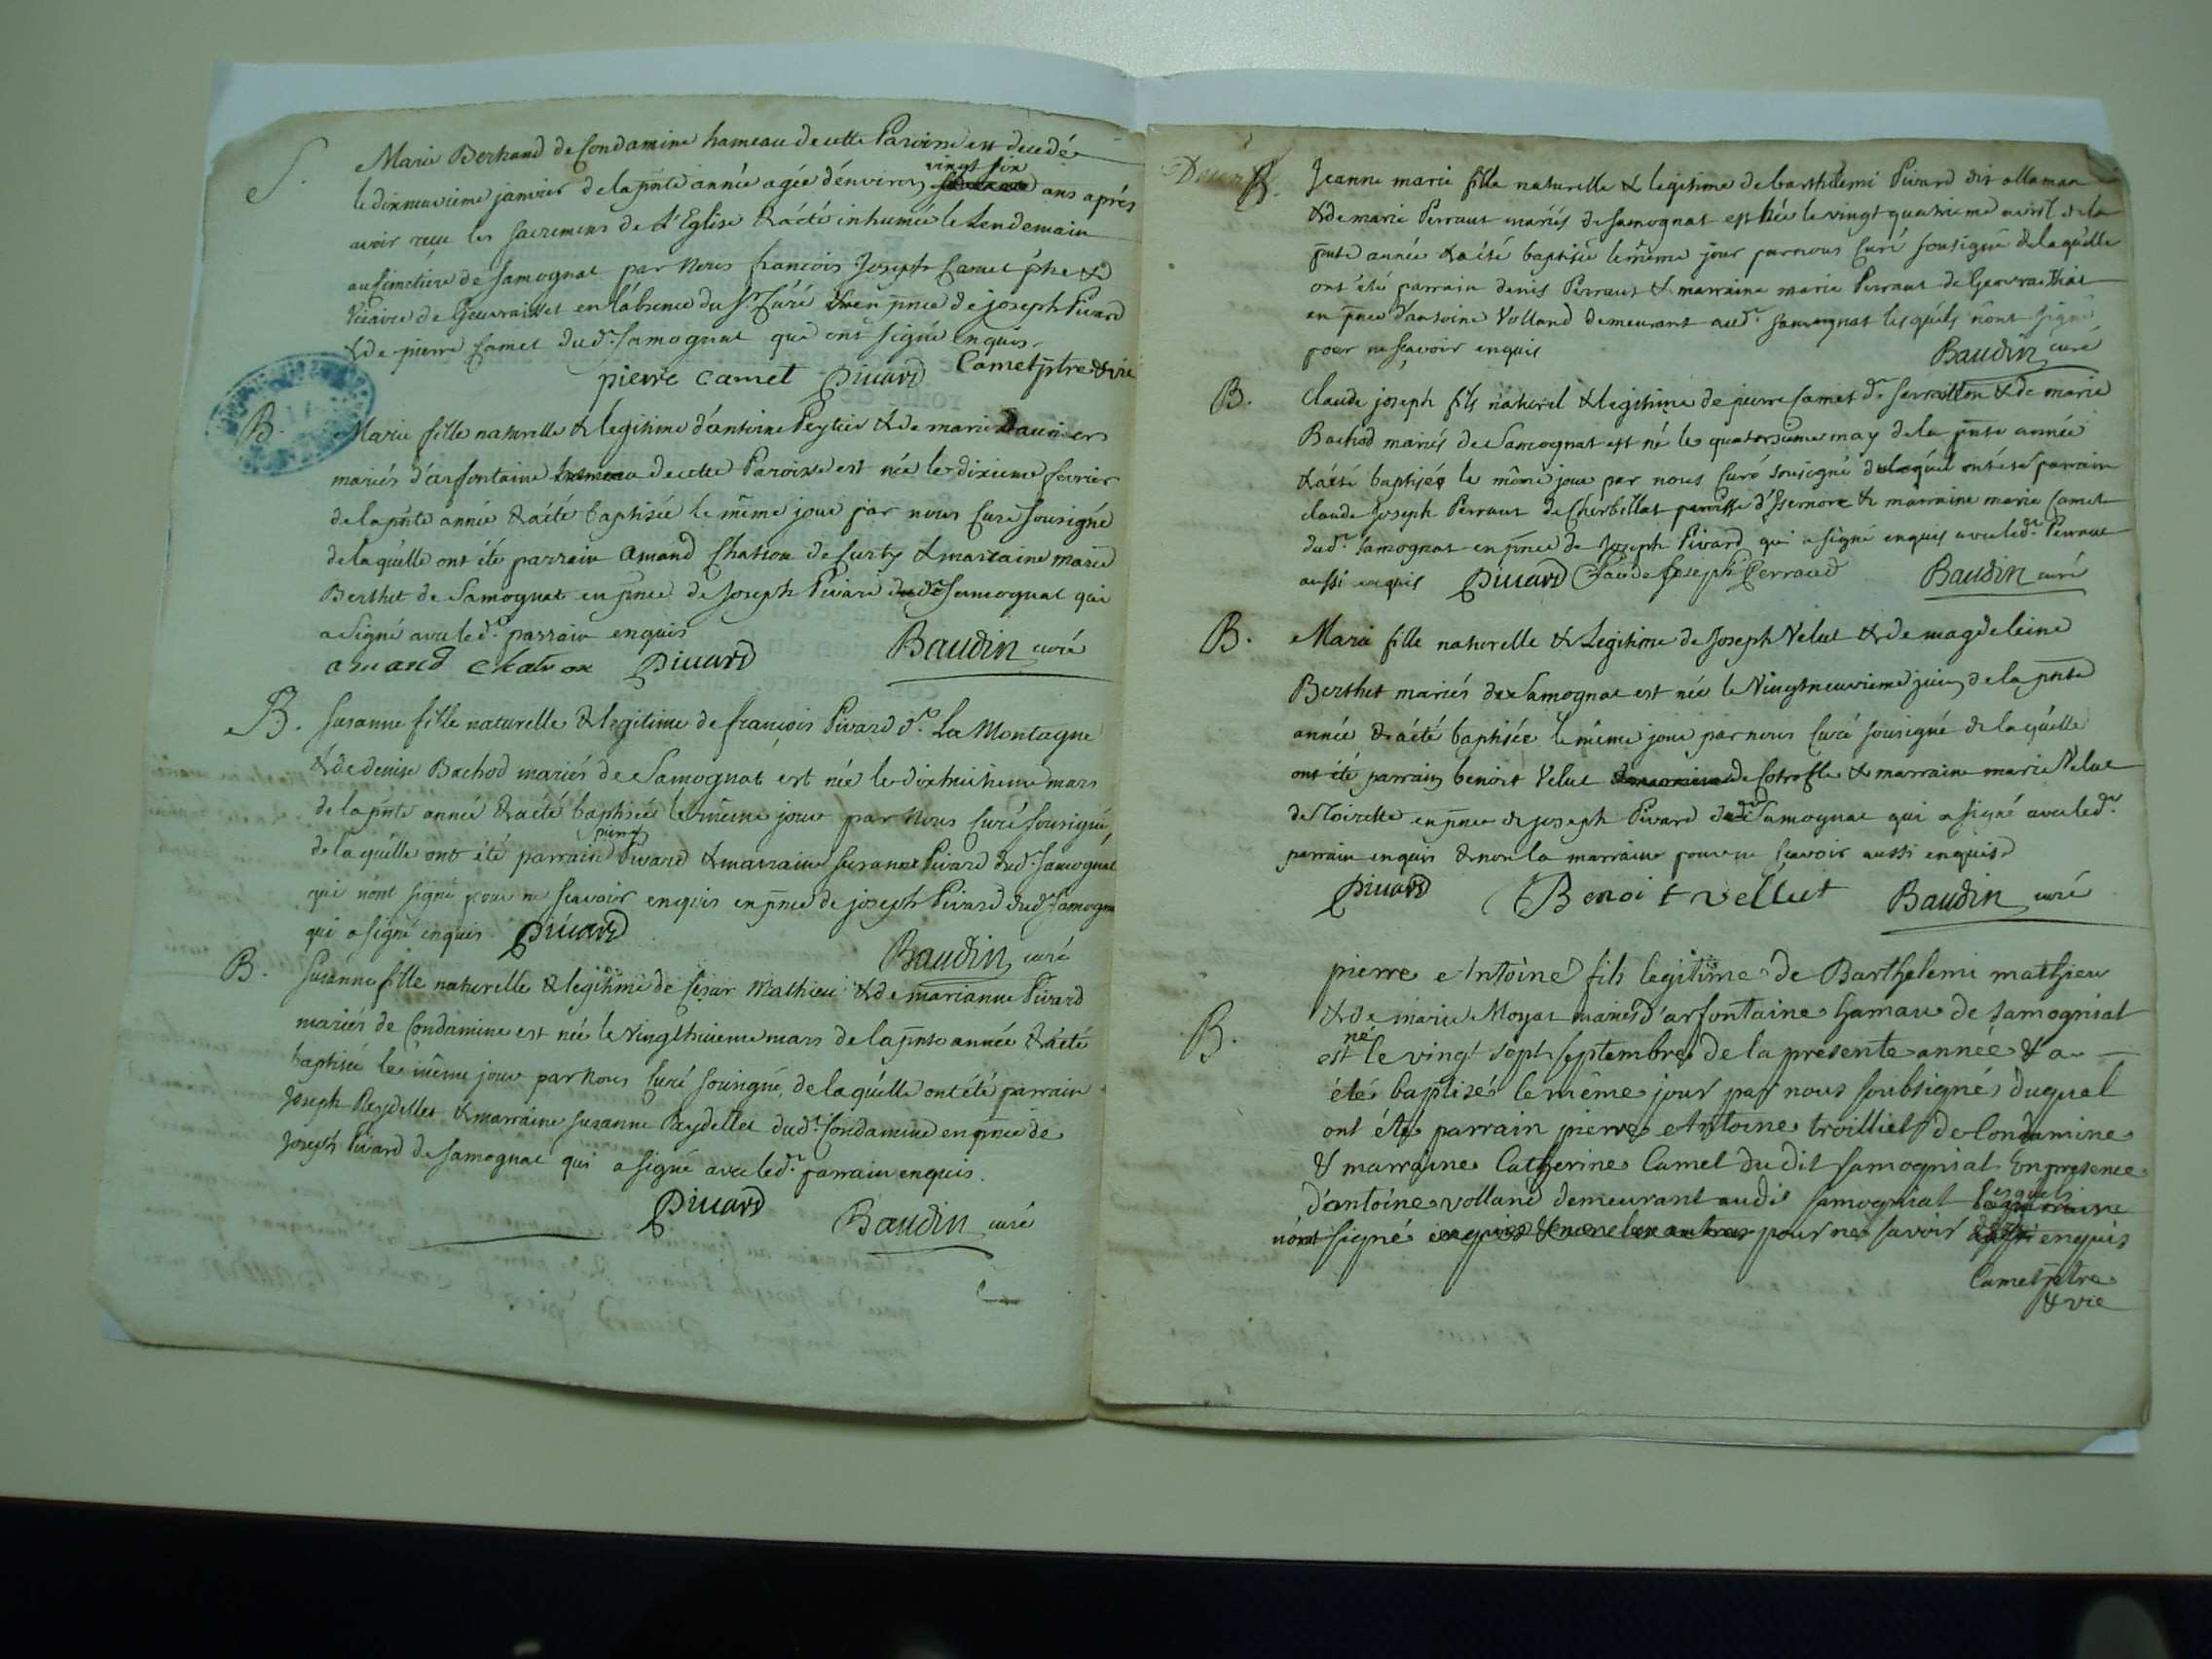 S. Marie Bertrand de Condamine hameau de cette Paroisse est decedée
le dixneuvieme janvier de la pnte année agée d'environ vingt six ans aprés
avoir reçu les sacremens de L'Eglise & a été inhumée le Lendemain
au simetiere de Samognat par Nous francois Joseph Camet ptre &
Vicaire de Geovraissiat en l'absence du Sr Curé & en pnce de joseph Pivard
& de pierre Camet dud. Samognat qui ont signé Enquis.
pierre camet Pivard Camet ptre & vic
B. Marie fille naturelle & legitime d'antoine Peytier & de marie
mariés d'arfontaine hameau de cette Paroisse est née le dixieme fevrier
de la pnte année & a été baptisée le même jour par nous Curé sousigné
de laquelle ont été parrain amand Chatron de Curty & marraine marie
Berthet de Samognat en pnce de Joseph Pivard dud. Samognat qui
a signé avec led. parrain enquis
amand chatron Pivard Baudin curé
B. Susanne fille naturelle & legitime de francois Pivard d. La Montagne
& de denise Bachod mariés de Samognat est née le dixhuitieme mars
de la pnte année & a été baptisée le même jour par Nous Curé sousigné
de laquelle ont été parrain pierre Pivard & marraine Susanne Pivard dud. Samognat
qui n'ont signé pour ne sçavoir enquis en pnce de joseph Pivard dud. Samognat
qui a signé enquis Pivard
Baudin curé
B. Susanne fille naturelle & legitime de Cesar Mathieu & de marianne Pivard
mariés de Condamine est née le Vingthuitieme mars de la pnte année & a été
baptisée le même jour par Nous Curé sousigné, de laquelle ont été parrain
Joseph Reydellet & marraine susanne Reydellet dud. Condamine en pnce de
Joseph Pivard de Samognat qui a signé avec led. parrain enquis.
Pivard Baudin curé
B. Jeanne marie fille naturelle & legitime de barthelemi Pivard dit allaman
& de marie Perraut mariés de Samognat est née le vingt quatrieme avril de la
pnte année & a été baptisée le même jour par nous Curé sousigné de laquelle
ont été parrain denis Perraut & marraine marie Perraut de Geovraissiat
en pnce d'antoine Volland demeurant aud. Samognat lesquels n'ont signé
pour ne sçavoir enquis
Baudin curé
B. Claude joseph fils naturel & legitime de pierre Camet d. & de marie
Bachod mariés de Samognat est né le quatorzieme may de la pnte année
& a été baptisé le même jour par nous Curé sousigné duquel ont été parrain
claude Joseph Perraut de Cherbillat paroisse d'Isernore & marraine marie Camet
dud. Samognat en pnce de Joseph Pivard qui a signé enquis avec led. Perraut
aussi enquis Pivard Claude Joseph Perraud Baudin curé
B. Marie fille naturelle & Legitime de Joseph Velut & de magdeleine
Berthet mariés de Samognat est née le Vingtneuvieme juin de la pnte
année & a été baptisée le même jour par nous Curé sousigné de laquelle
ont été parrain benoit Velut de & marraine marie Velut
de Noirette en pnce de joseph Pivard dud. Samognat qui a signé avec led.
parrain enquis & non la marraine pour ne sçavoir aussi enquise
Pivard Benoit vellut Baudin curé
pierre Antoine fils legitime de Barthelemi mathieu
& de marie Moyat mariés d'arfontaine hamau de samogniat
B. est né le vingt sept septembre de la presente année & a
été baptisé le même jour par nous soubsignés duquel
ont été parrain pierre Antoine troilliet de Condamine
& marraine Catherine Camet du dit samogniat En presence
d'antoine volland demeurant au dit samogniat lesquels
n'ont signé pour ne savoir enquis
Camet ptre
& vic